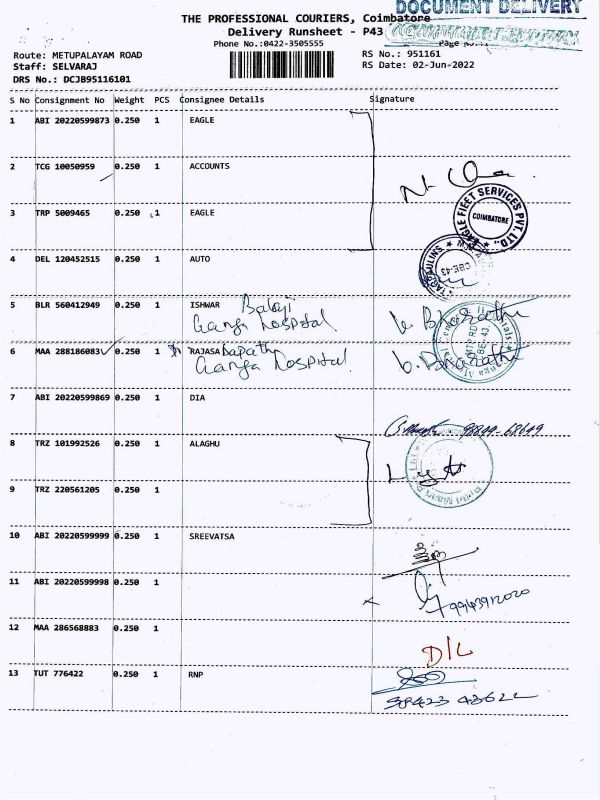 DOCUMENT DELIVERY
THE PROFESSIONAL COURIERS, Coimbatore
Delivery Runsheet - P43
Phone No.:0422-3505555
Page No.:1
Route: METUPALAYAM ROAD
RS No.: 951161
Staff: SELVARAJ
RS Date: 02-Jun-2022
DRS No.: DCJB95116101
S No Consignment No Weight PCS Consignee Details Signature
1 ABI 20220599873 0.250 1 EAGLE
2 TCG 10050959 0.250 1 ACCOUNTS
EAGLE FLEET SERVICES PVT. LTD.,
COIMBATORE
3 TRP 5009465 0.250 1 EAGLE
4 DEL 120452515 0.250 1 AUTO
TARPAULINS
CBE-43
5 BLR 560412949 0.250 1 ISHWAR Balaji
Ganga Hospital
V. Bharathi
MTP RD
CBE-43
6 MAA 288186083 0.250 1 RAJASA
Ganga Hospital.
V. Bharathi
7 ABI 20220599869 0.250 1 DIA
98849-68649
8 TRZ 101992526 0.250 1 ALAGHU
9 TRZ 220561205 0.250 1
10 ABI 20220599999 0.250 1 SREEVATSA
11 ABI 20220599998 0.250 1
9943912020
12 MAA 286568883 0.250 1
D/L
13 TUT 776422 0.250 1 RNP
98423 43622